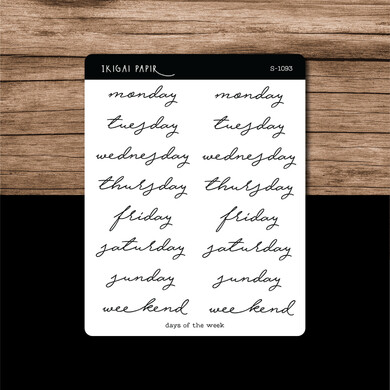 IKIGAI PAPIR S-1093
monday monday
tuesday tuesday
wednesday wednesday
thursday thursday
friday friday
saturday saturday
sunday sunday
weekend weekend
days of the week